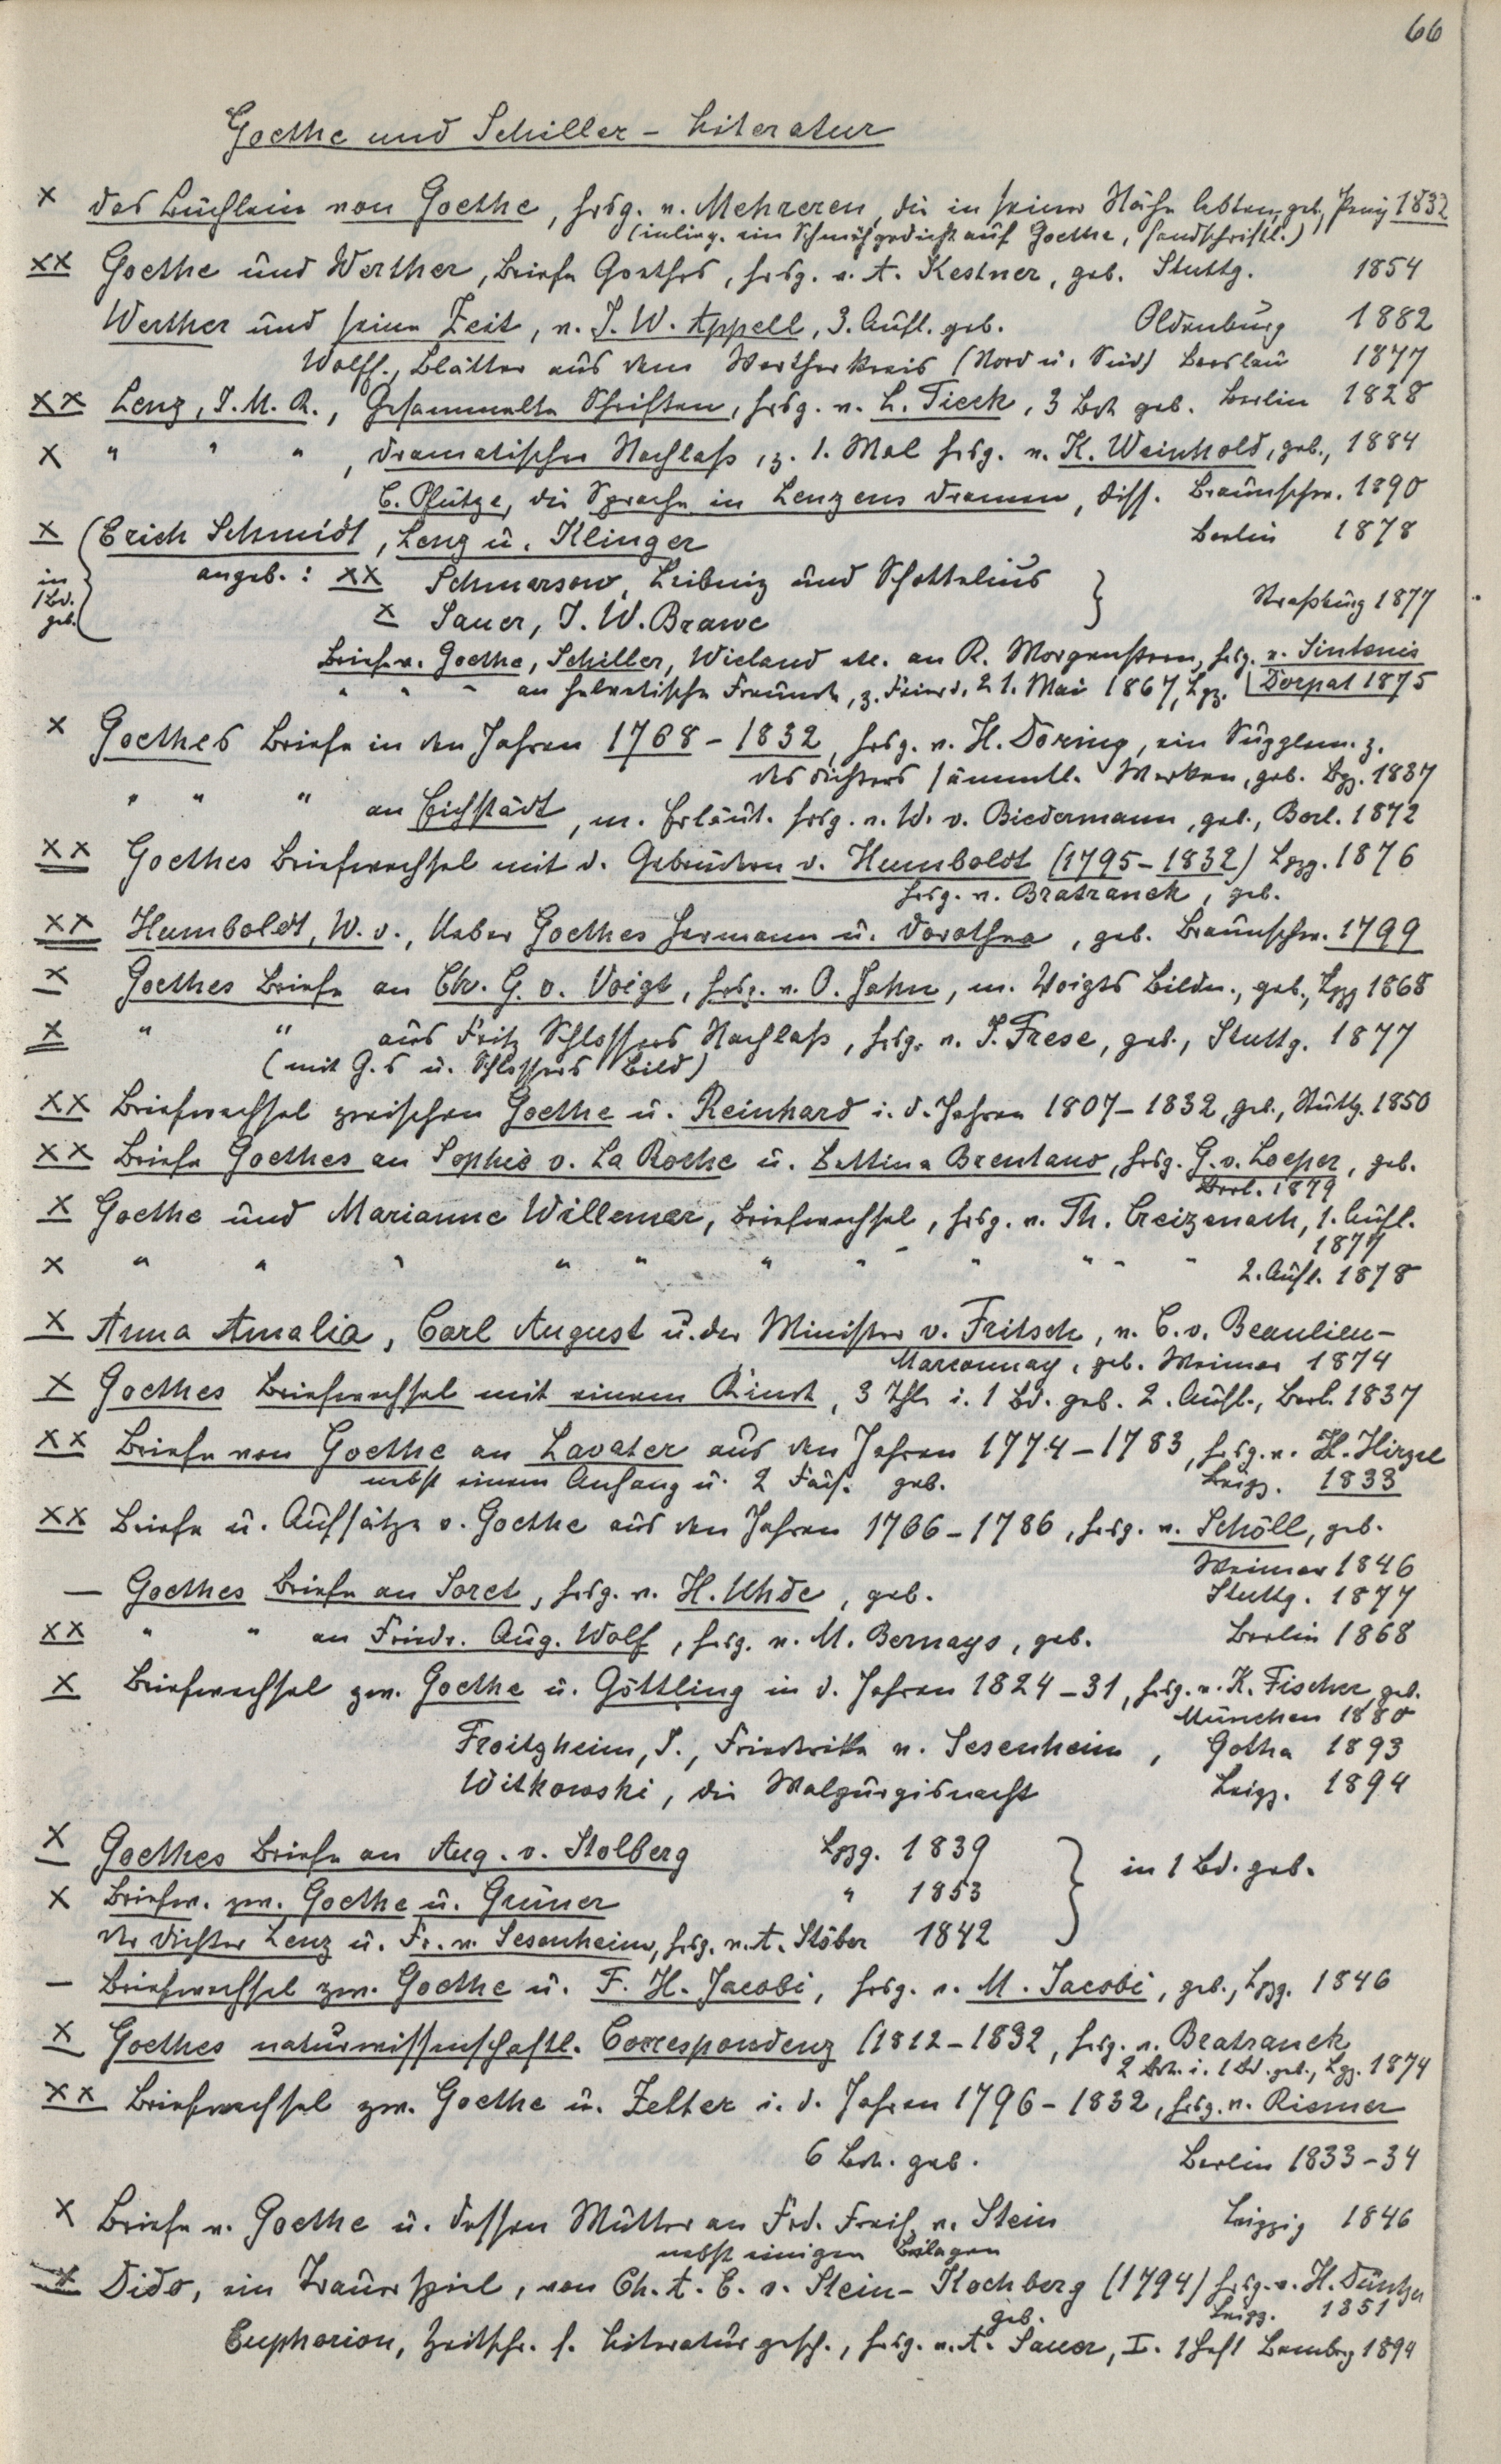 66
Goethe und Schiller - Literatur
x das Büchlein von Goethe, hrsg. v. Mehreren, die in seiner Nähe lebten, geb., Penig 1832
(inlieg. ein Schmähgedicht auf Goethe, handschriftl.)
xx Goethe und Werther, Briefe Goethes, hrsg. v. A. Kestner, geb. Stuttg. 1854
Werther und seine Zeit, v. J. W. Appell, 3. Aufl. geb. Oldenburg 1882
Wolff., Blätter aus dem Wertherkreis (Nord u. Süd) Breslau 1877
xx Lenz, J. M. R., Gesammelte Schriften, hrsg. v. L. Tieck, 3 Bde geb. Berlin 1828
x " " " , dramatischer Nachlaß, z. 1. Mal hrsg. v. K. Weinhold, geb., 1884
C. Pfütze, die Sprache in Lenzens Dramen, Diss. Braunschw. 1890
x (Erich Schmidt, Lenz u. Klinger Berlin 1878
in 1 Bd. geb. angeb.: xx Schmarsow, Leibniz und Schottelius } Straßburg 1877
x Sauer, J. W. Brawe
Briefe v. Goethe, Schiller, Wieland etc. an K. Morgenstern, hrsg. v. Sintenis
" " " an helvetische Freunde, z. Feier d. 21. Mai 1867, Lpz. | Dorpat 1875
x Goethes Briefe in den Jahren 1768-1832, hrsg. v. H. Döring, ein Supplem. z.
des Dichters sämmtl. Werken, geb. Lpz. 1837
" " " an Eichstädt, m. Erläut. hrsg. v. W. v. Biedermann, geb., Berl. 1872
xx Goethes Briefwechsel mit d. Gebrüdern v. Humboldt (1795-1832) Lpzg. 1876
hrsg. v. Bratranek, geb.
xx Humboldt, W. v., Ueber Goethes Hermann u. Dorothea, geb. Braunschw. 1799
x Goethes Briefe an Chr. G. v. Voigt, hrsg. v. O. Jahn, m. Voigts Bildn., geb., Lpzg 1868
x " " aus Fritz Schlossers Nachlaß, hrsg. v. J. Frese, geb., Stuttg. 1877
(mit G.s u. Schlossers Bild)
xx Briefwechsel zwischen Goethe u. Reinhard i. d. Jahren 1807-1832, geb., Stuttg. 1850
xx Briefe Goethes an Sophie v. La Roche u. Bettina Brentano, hrsg. G. v. Loeper, geb.
Berl. 1879
x Goethe und Marianne Willemer, Briefwechsel, hrsg. v. Th. Creizenach, 1. Aufl.
1877
x " " " " " " " " " " " " 2. Aufl. 1878
x Anna Amalia, Carl August u. der Minister v. Fritsch, v. C. v. Beaulieu-
Marconnay, geb. Weimar 1874
x Goethes Briefwechsel mit einem Kinde, 3 Thle i. 1 Bd. geb. 2. Aufl., Berl. 1837
xx Briefe von Goethe an Lavater aus den Jahren 1774-1783, hrsg. v. H. Hirzel
nebst einem Anhang u. 2 Facs. geb. Leipz. 1833
xx Briefe u. Aufsätze v. Goethe aus den Jahren 1766-1786, hrsg. v. Schöll, geb.
Weimar 1846
— Goethes Briefe an Soret, hrsg. v. H. Uhde, geb. Stuttg. 1877
xx " " an Friedr. Aug. Wolf, hrsg. v. M. Bernays, geb. Berlin 1868
x Briefwechsel zw. Goethe u. Göttling in d. Jahren 1824-31, hrsg. v. K. Fischer, geb.
München 1880
Froitzheim, J., Friederike v. Sesenheim, Gotha 1893
Witkowski, die Walpurgisnacht Leipz. 1894
x Goethes Briefe an Aug. v. Stolberg Lpzg. 1839 } in 1 Bd. geb.
x Briefw. zw. Goethe u. Grüner " 1853
der Dichter Lenz u. Fr. v. Sesenheim, hrsg. v. A. Stöber 1842
— Briefwechsel zw. Goethe u. F. H. Jacobi, hrsg. v. M. Jacobi, geb., Lpzg. 1846
x Goethes naturwissenschaftl. Correspondenz (1812-1832, hrsg. v. Bratranek
2 Bde. i. 1 Bd. geb., Lpz. 1874
xx Briefwechsel zw. Goethe u. Zelter i. d. Jahren 1796-1832, hrsg. v. Riemer
6 Bde. geb. Berlin 1833-34
x Briefe v. Goethe u. dessen Mutter an Frd. Freih. v. Stein Leipzig 1846
nebst einigen Beilagen
x Dido, ein Trauerspiel, von Ch. A. E. v. Stein-Kochberg (1794) hrsg. v. H. Düntzer
geb. Leipz. 1851
Euphorion, Zeitschr. f. Literaturgesch., hrsg. v. A. Sauer, I. 1 Heft Bamberg 1894